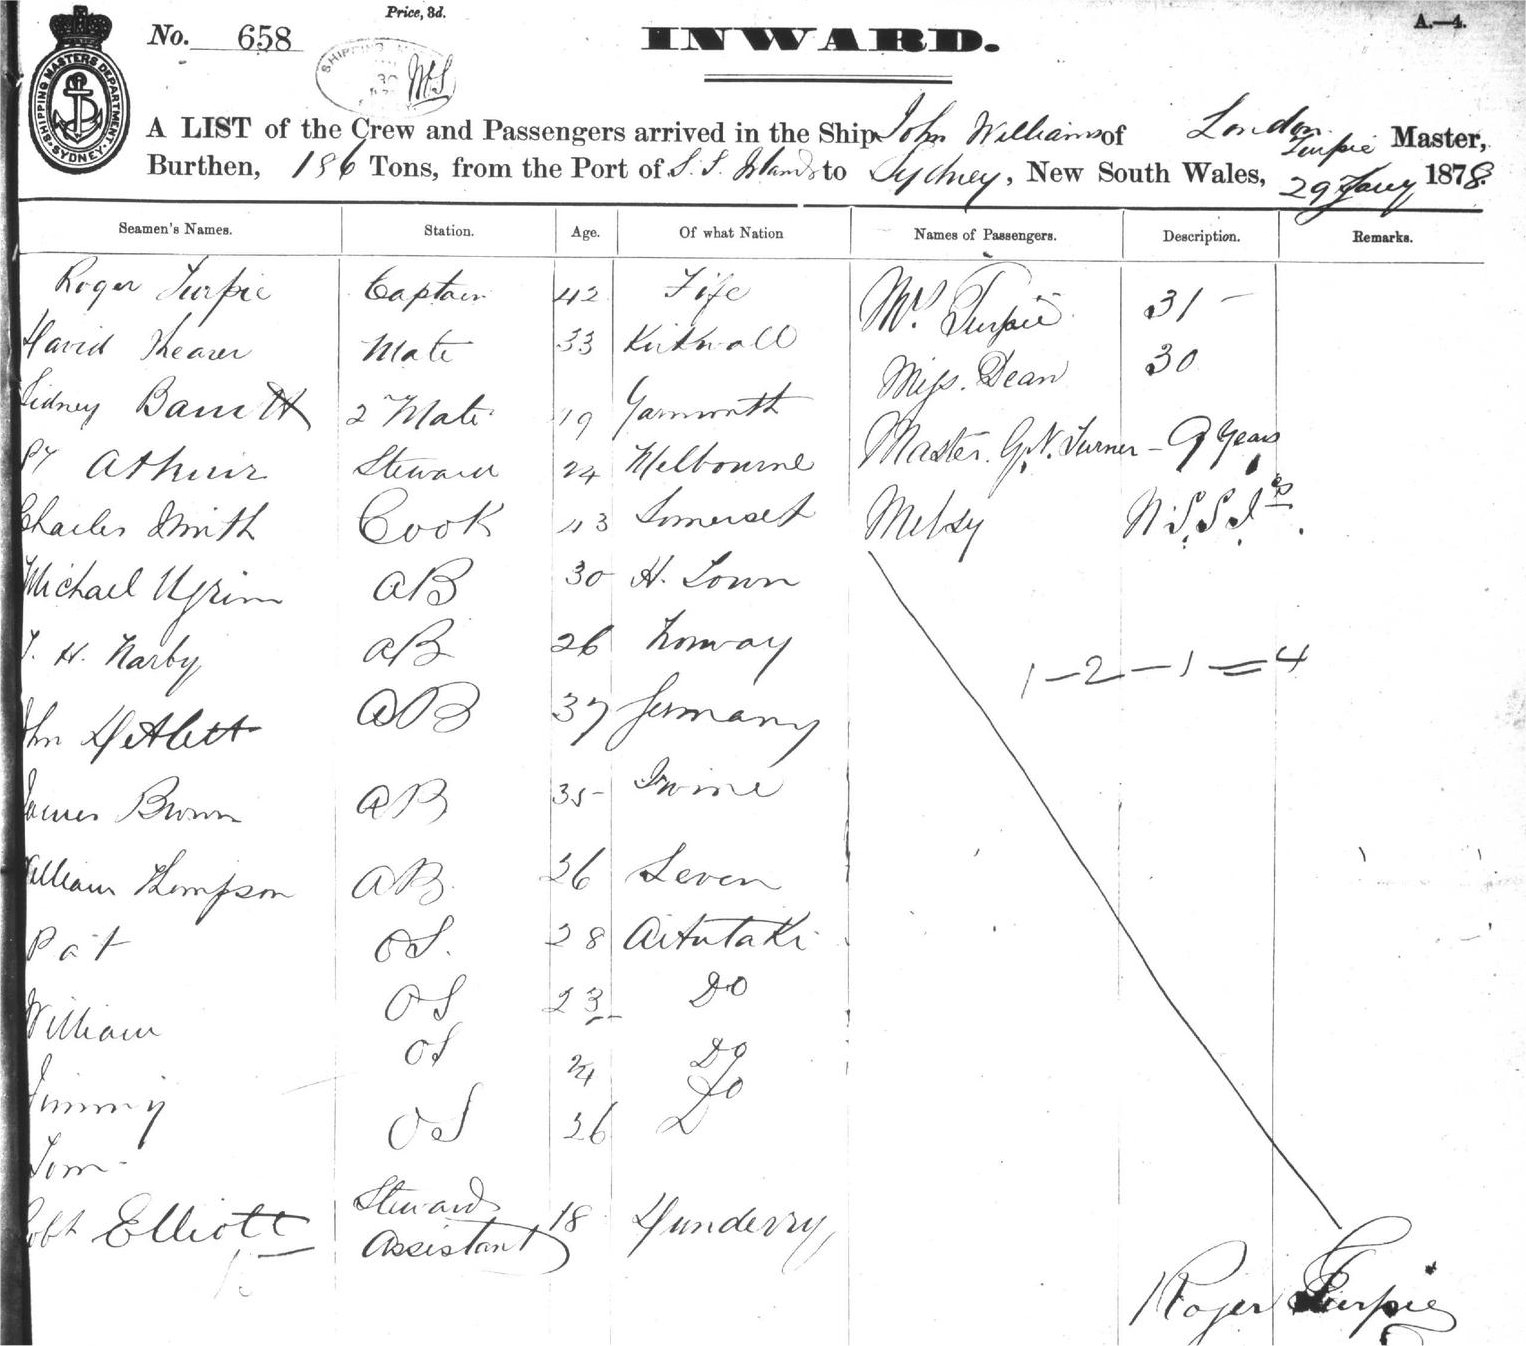 Price, 3d.
A.—4.
No. 658
INWARD.
SHIPPING MASTERS DEPARTMENT SYDNEY
A LIST of the Crew and Passengers arrived in the Ship John Williams of London Turpie Master,
Burthen, 186 Tons, from the Port of S. S. Islands to Sydney, New South Wales, 29 Jany 1878.
Seamen's Names. Station. Age. Of what Nation Names of Passengers. Description. Remarks.
Roger Turpie Captain 42 Fife Mrs. Turpie 31 –
David Mate 33 Kirkwall Miss. Dean 30
Sidney Barrett 2 Mate 19 Yarmouth Master. G. N. Turner – 9 Years
Arthur Steward 24 Melbourne
Charles Smith Cook 43 Somerset
Michael AB 30 H. Town
H. Narby AB 26 Norway 1 – 2 – 1 = 4
John AB 37 Germany
James Brown AB 35 Irvine
William Thompson AB. 26 Leven
Pat OS. 28 Aitutaki
William OS 23 Do
Jimmy OS 24 Do
Tom OS 26 Do
Robt Elliott Stewards Assistant 18
Roger Turpie